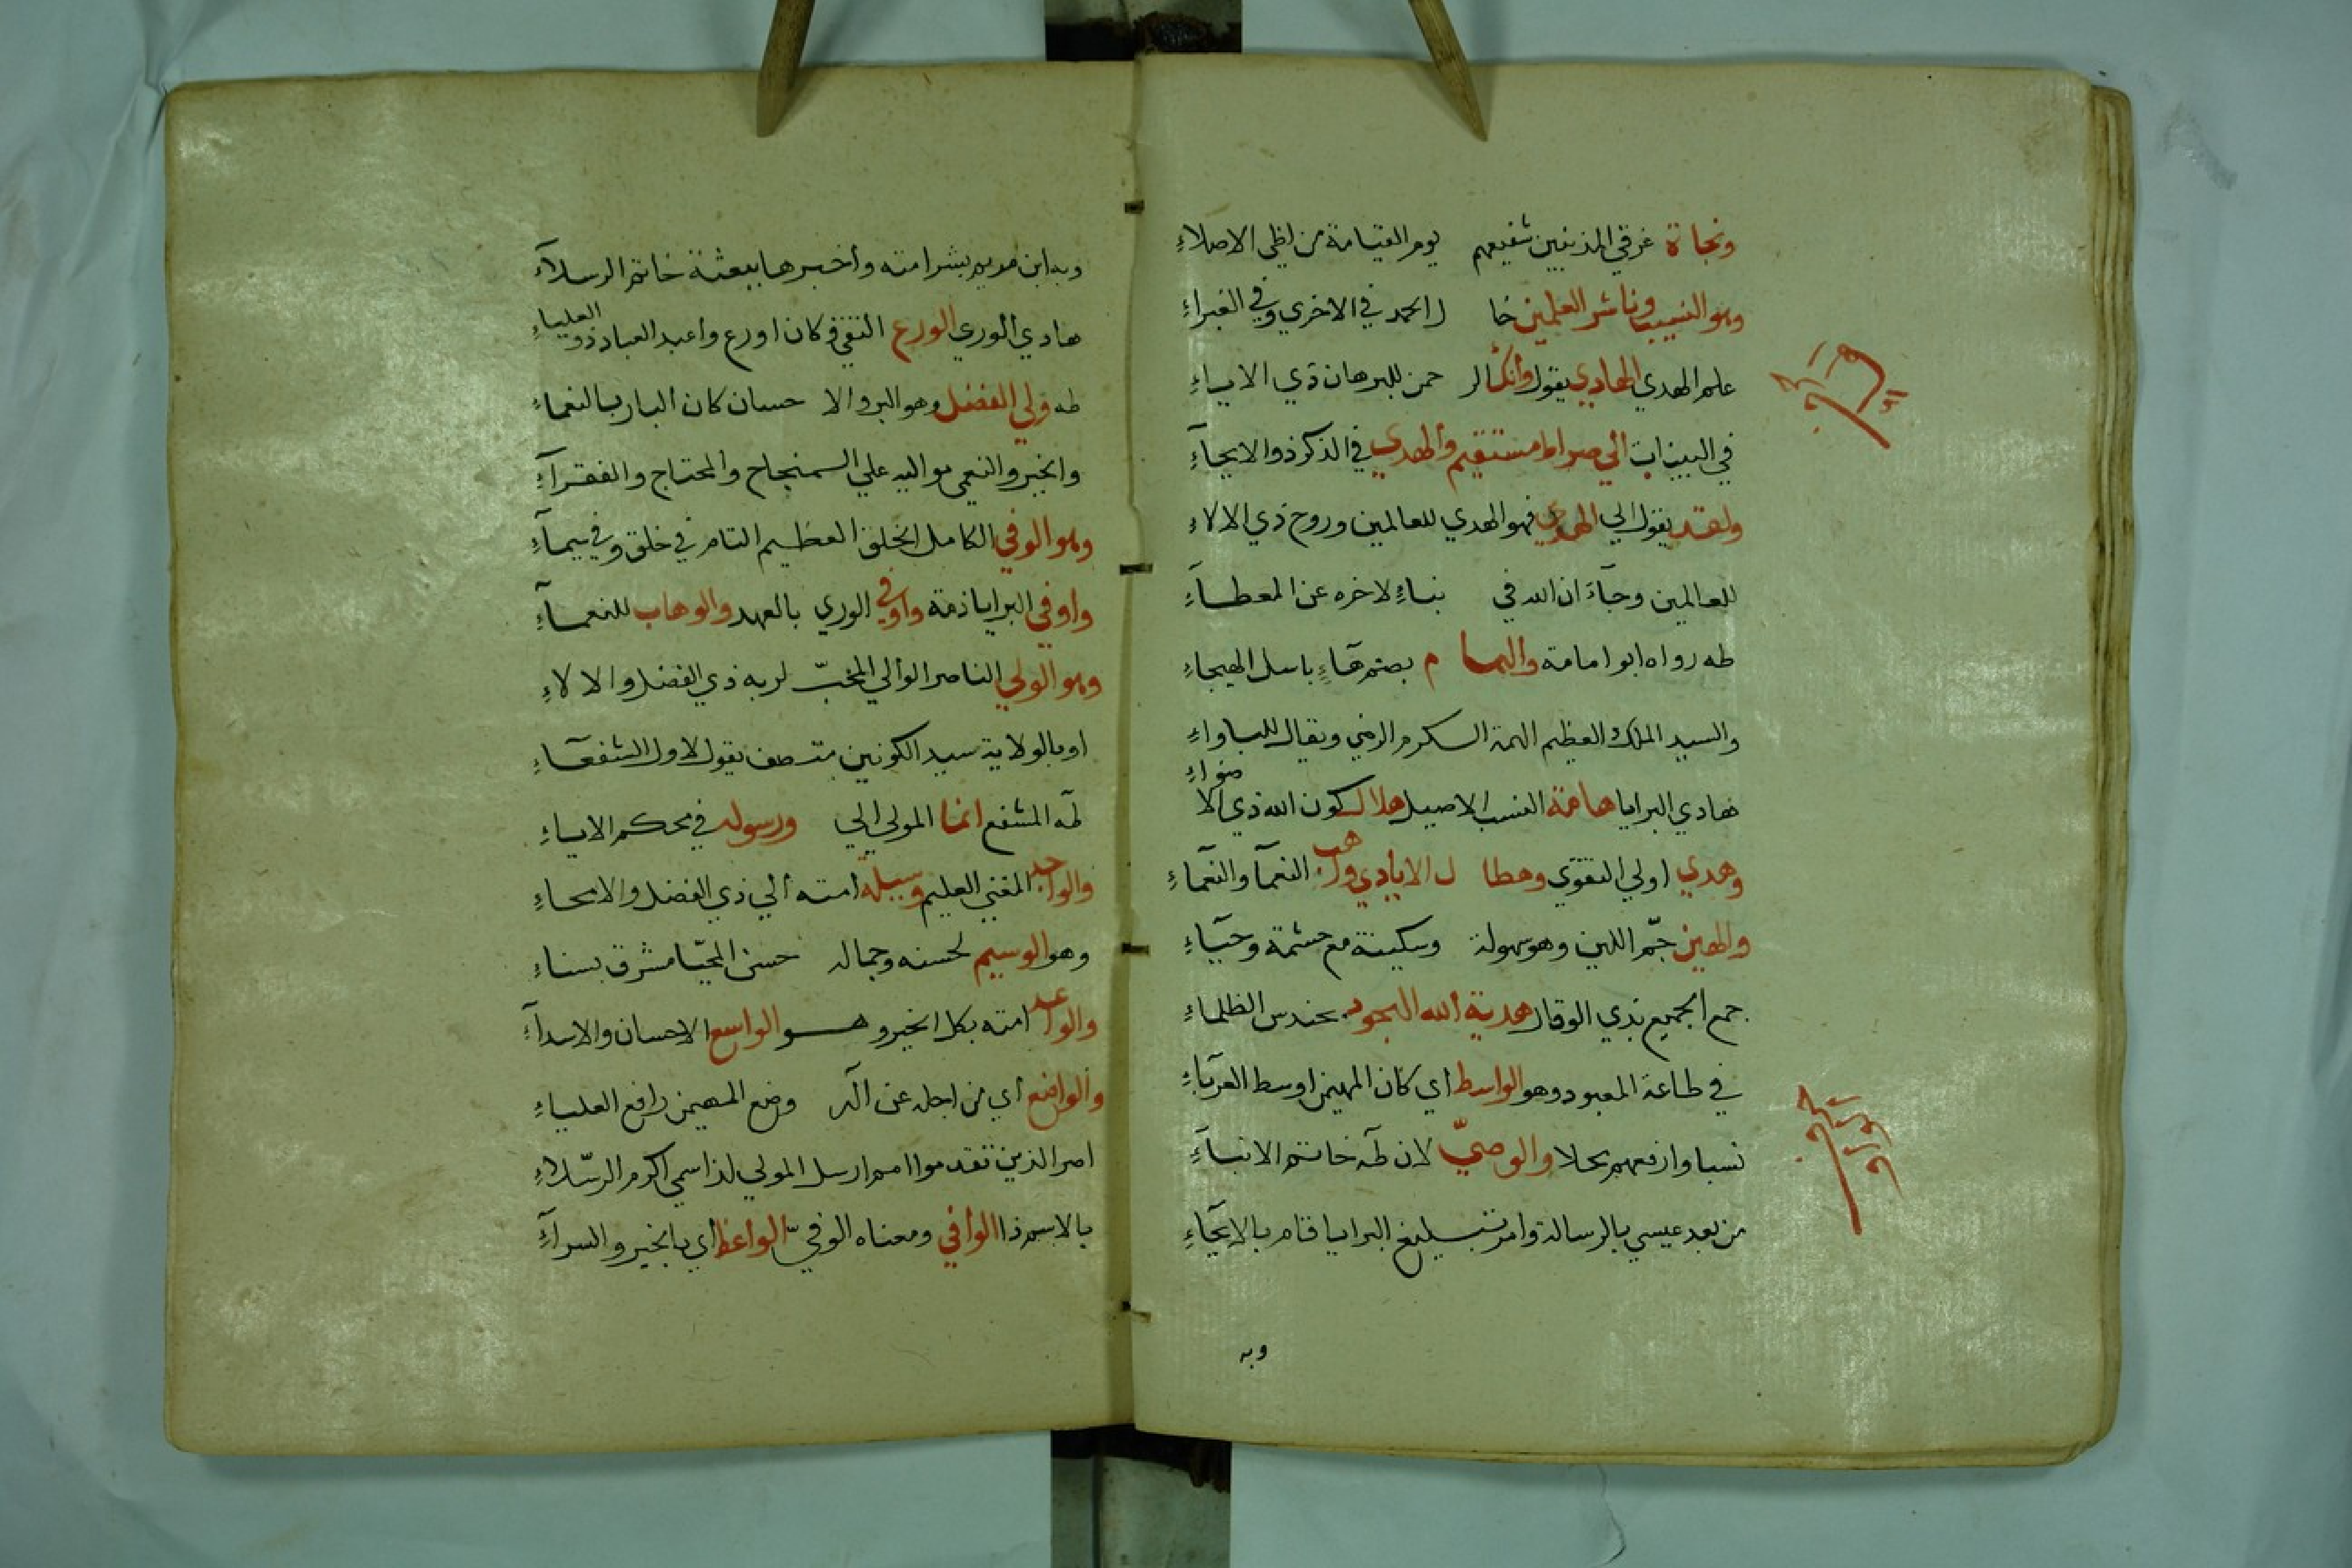 ونجاة غرقي المذنبين شفيعهم يوم القيامة من لظي الاصلاءِ
وهو النسيب وناشر العلمين خا ر الحمد في الاخري وفي الغبراءِ
علم الهدي الهادي يقول وأنك الر حمن للبرهان ذي الايباءِ
في البينات الي صراط مستقيم والهدي في الذكر ذو الايحآءِ
ولقد يقول الي الهدي فهو الهدي للعالمين وروح ذي الالاءِ
للعالمين وجآءَ ان الله في بناءِ لاخره عن المعطــاءِ
طه رواه ابو امامة والهمـا م بضم هآءِ باسل الهيجاءِ
والسيد الملك العظيم الهمة السكرم الرضي ويقال للباواءِ
فهادي البرايا هامة النسب الاصيل هلال كون الله ذي الاضواءِ
وهدي اولي التقوي وهطا ل الايادي واهب النعمآ والنعمآءِ
والهين جم اللين وهو سهولة وسكينة مع حشمة وحيآءِ
جمع الجميع بذي الوقار هدية الله الهجود بحندس الظلماءِ
في طاعة المعبود وهو الواسط أي كان المهيمن اوسط العرباءِ
نسبا وارفعهم محلا والوصيّ لان طه خاتم الانبآءِ
من بعد عيسي بالرسالة وامر تبــليغ البرايا قام بالايحآءِ
وبه
وبه ابن مريم بشر امته وأخـبرها ببعثة خاتم الرسلآءِ
هادي الوري الورع التقي فكان اورع واعبد العباد ذو العلياءِ
طه ولي الفضل وهو البر والا حسان كان البار بالنعماءِ
والخير والنعمي مواليه علي السمنجاح والمحتاج والفقـرآءِ
وهو الوفي الكامل الخلق العظـيم التام في خلق وفي سيمآءِ
واوفي البرايا ذمة واوفي الوري بالعهد والوهاب للنعمـآءِ
وهو الولي الناصر الوالي المحبّ لربه ذي الفضل والالاءِ
او بالولاية سيد الكونين متـصف يقول لاول الشفعـآءِ
طه المشفع انما المولي الي ورسوله في محكم الايباءِ
والواجد المغني العليم وسيلة امته ألي ذي الفضل والايحاءِ
وهو الوسيم لحسنه وجماله حسن المحيّا مشرق بسناءِ
والواعد امته بكل الخير وهــو الواسع الاحسان والاسدآءِ
والواضع أي من اجله عن اله وضع المهيمن رافع العلياءِ
اصر الذين تقدموا امم ارسل المولي لذا سمي اكرم الرسّلاءِ
بالاسم ذا الوافي ومعناه الوفيّ الواعظ أي بالخير والسرآءِ